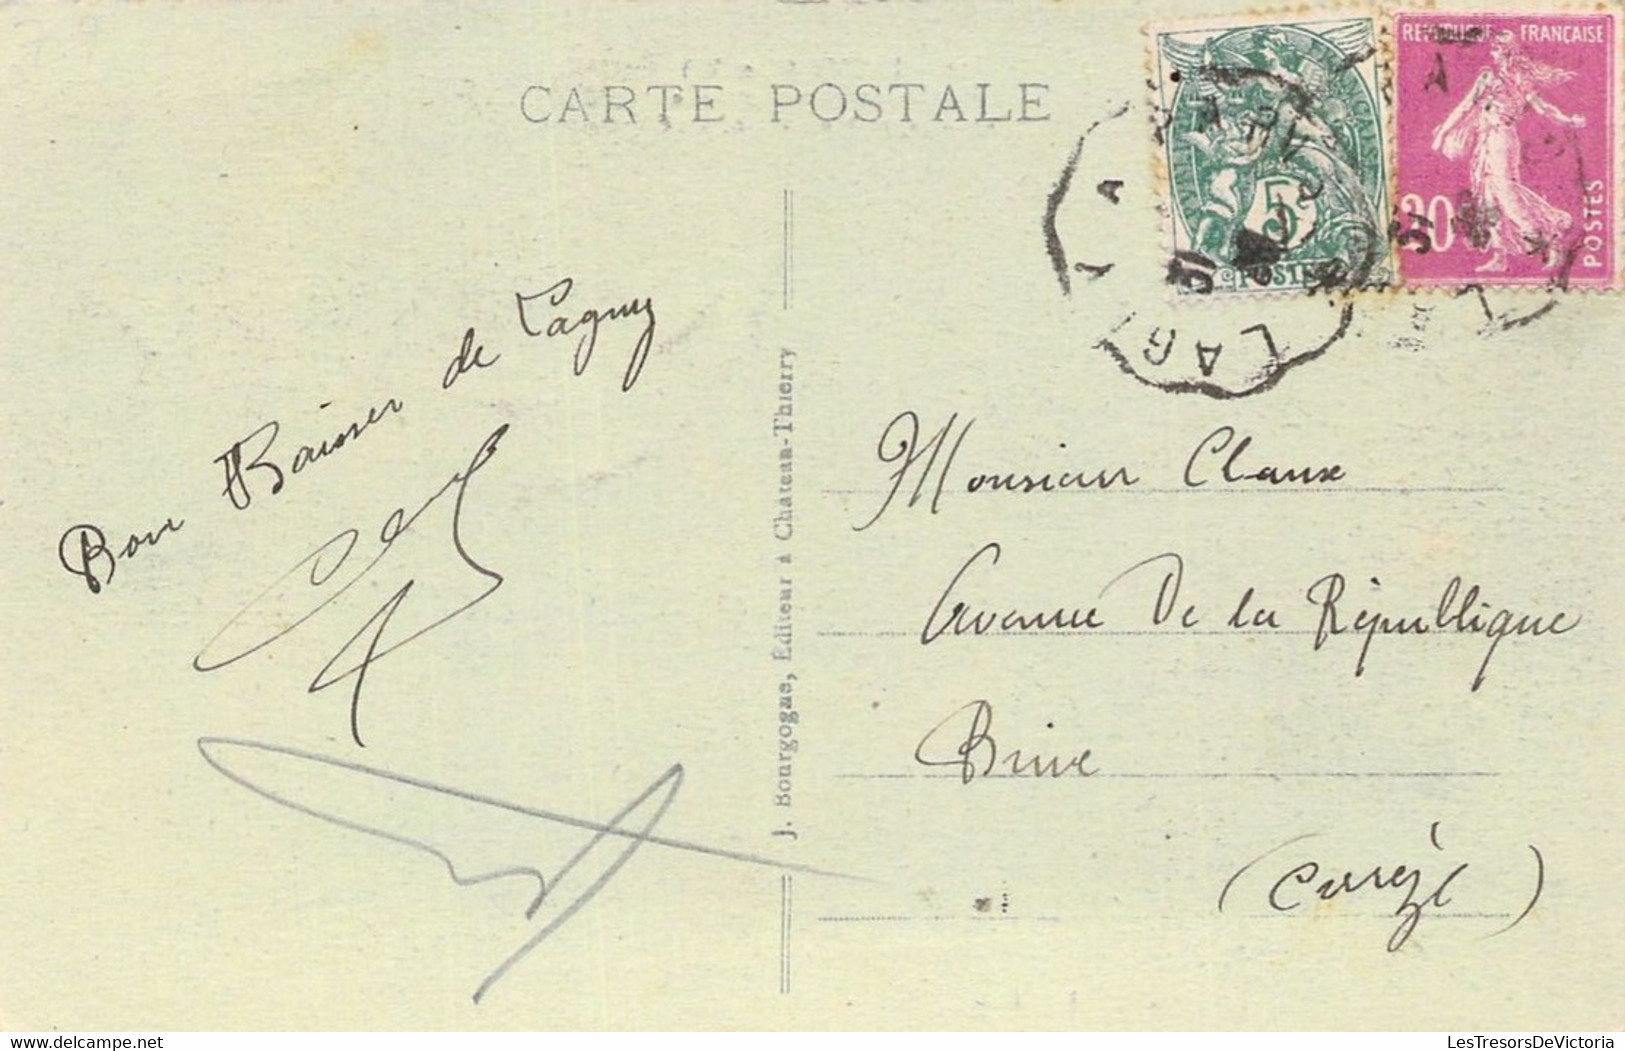 CARTE POSTALE
REPUBLIQUE FRANÇAISE
5
POSTES
20
POSTES
LAGNY A
Bon Baiser de Lagny
J. Bourgogne, Éditeur à Chateau-Thierry
Monsieur Claux
Avenue De la République
Brive
(Corrèze)
LesTresorsDeVictoria